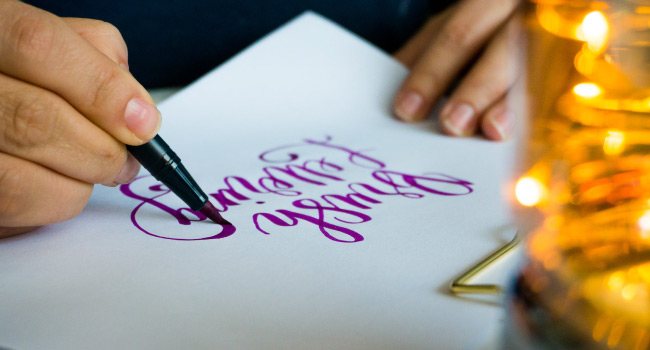 Brush
Lettering